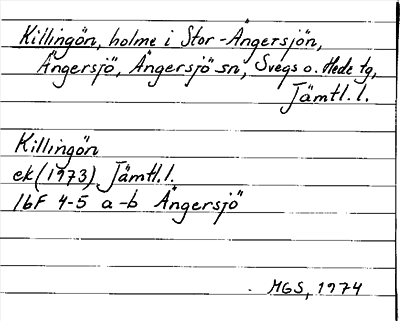 Killingön, holme i Stor-Ängersjön,
Ängersjö, Ängersjö sn, Svegs o. Hede tg,
Jämtl. l.
Killingön
ek (1973) Jämtl. l.
16F 4-5 a-b Ängersjö
MGS, 1974